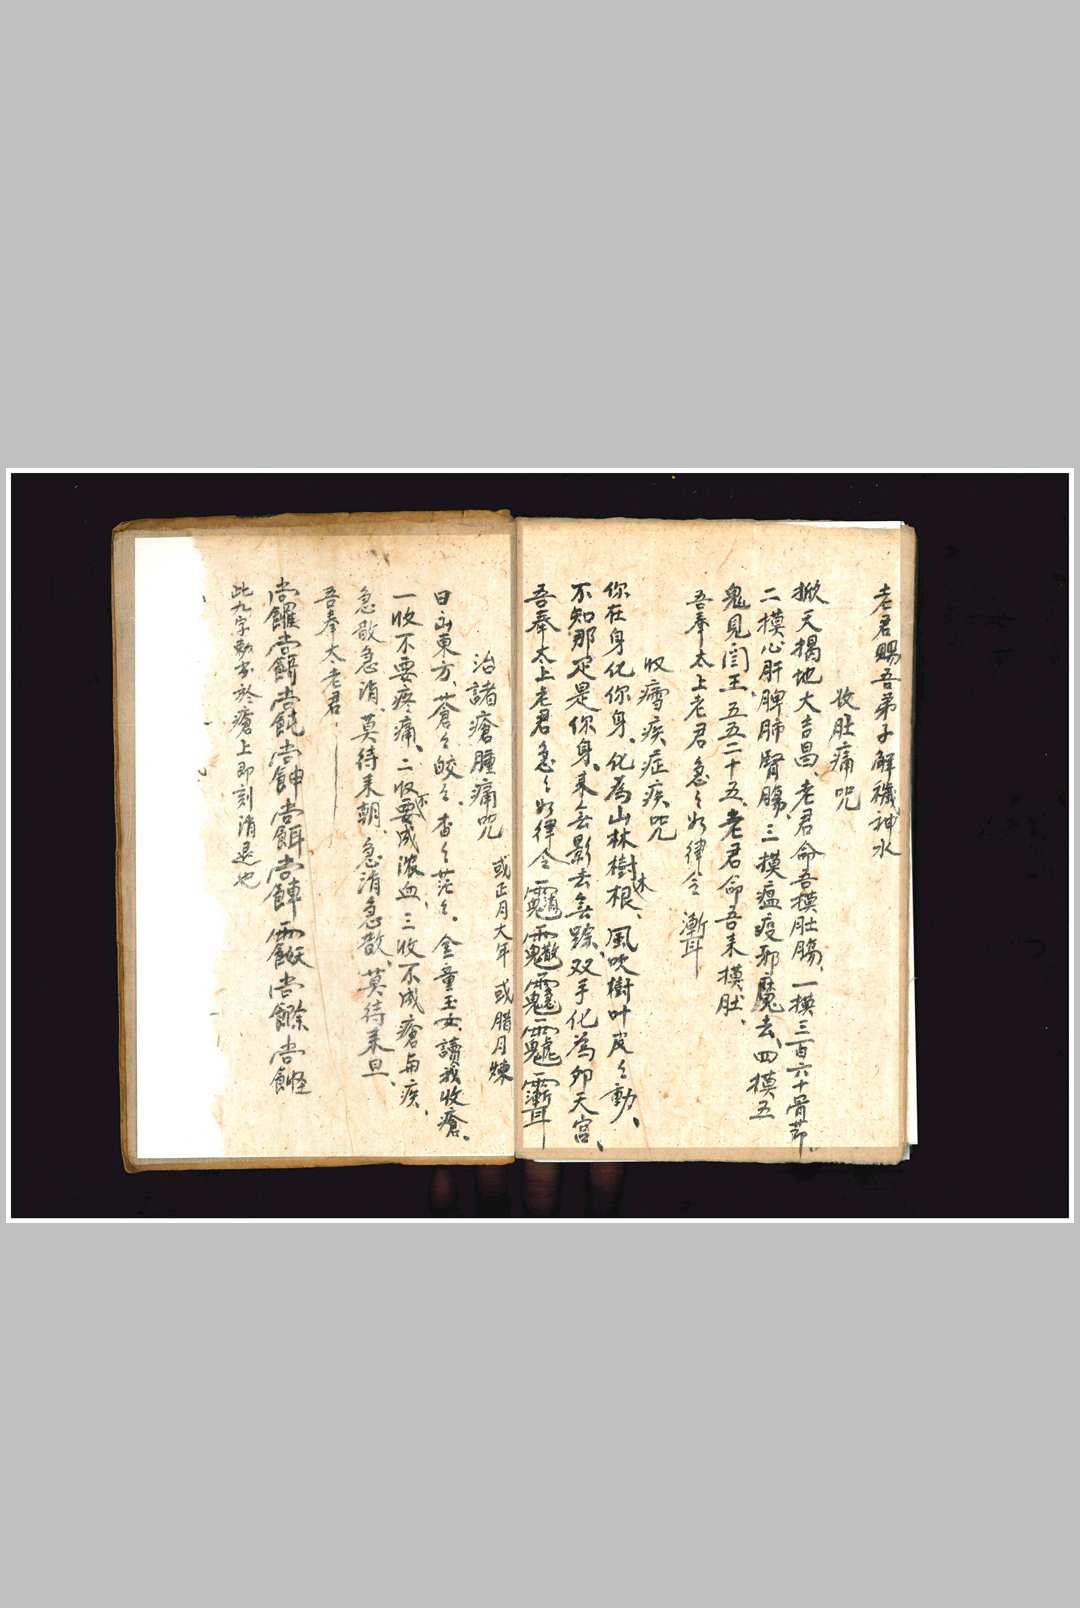 老君賜吾弟子解穢神水
收肚痛咒
掀天揭地大吉昌、老君命吾摸肚腸、一摸三百六十骨節、
二摸心肝脾肺腎腸、三摸瘟疫邪魔去、四摸五
鬼見閻王、五五二十五、老君命吾来摸肚、
吾奉太上老君急々如律令
收瘧疾症疾咒
你在身化你身、化為山林樹木根、風吹樹叶皮々動、
不知那足是你身、来無影去無踪、双手化為卯天宫、
吾奉太上老君急々如律令
治諸瘡腫痛咒 或正月大年 或腊月煉
日出東方、蒼々皎々、杳々茫々。金童玉女、請我收瘡。
一收不要疼痛、二收不要成浓血、三收不成瘡与疾、
急散急消、莫待来朝、急消急散、莫待来旦、
吾奉太老君
此九字勅書於瘡上即刻消退也